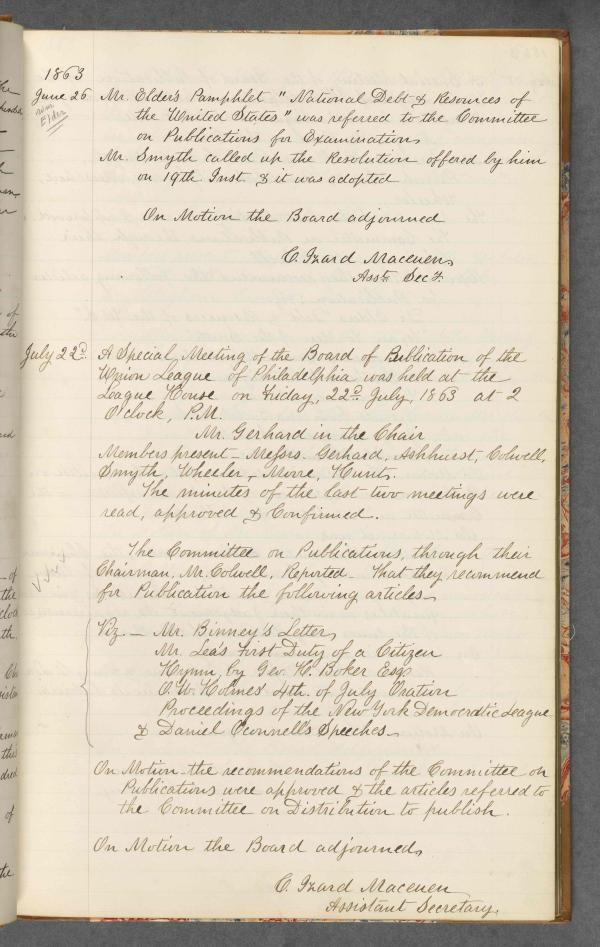 1863
June 26 Mr. Elder's Pamphlet "National Debt & Resources of
Elder
the United States" was referred to the Committee
on Publications for Examination
Mr. Smyth called up the Resolution offered by him
on 19th Inst. & it was adopted
On Motion the Board adjourned
C. Izard Maceuen
Asst. Secy.
July 22d. A Special Meeting of the Board of Publication of the
Union League of Philadelphia was held at the
League House on Friday, 22d July, 1863 at 2
O'clock, P.M.
Mr. Gerhard in the Chair
Members present - Messrs. Gerhard, Ashhurst, Colwell,
Smyth, Wheeler, Morre, Hunt.
The minutes of the last two meetings were
read, approved & Confirmed.
The Committee on Publications, through their
Chairman, Mr. Colwell, Reported - That they recommend
for Publication the following articles
Viz - Mr. Binney's Letter
Mr. Lea's First Duty of a Citizen
Hymn, by Geo. H. Boker Esq.
O. W. Holmes' 4th. of July Oration
Proceedings of the New York Democratic League
& Daniel Oconnell's Speeches
On Motion - the recommendations of the Committee on
Publications were approved & the articles referred to
the Committee on Distribution to publish.
On Motion the Board adjourned
C. Izard Maceuen
Assistant Secretary.